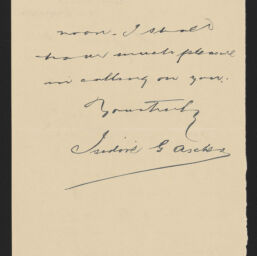 noon. I shall
have much pleasure
in calling on you.
Yours truly
Isidore G Ascher